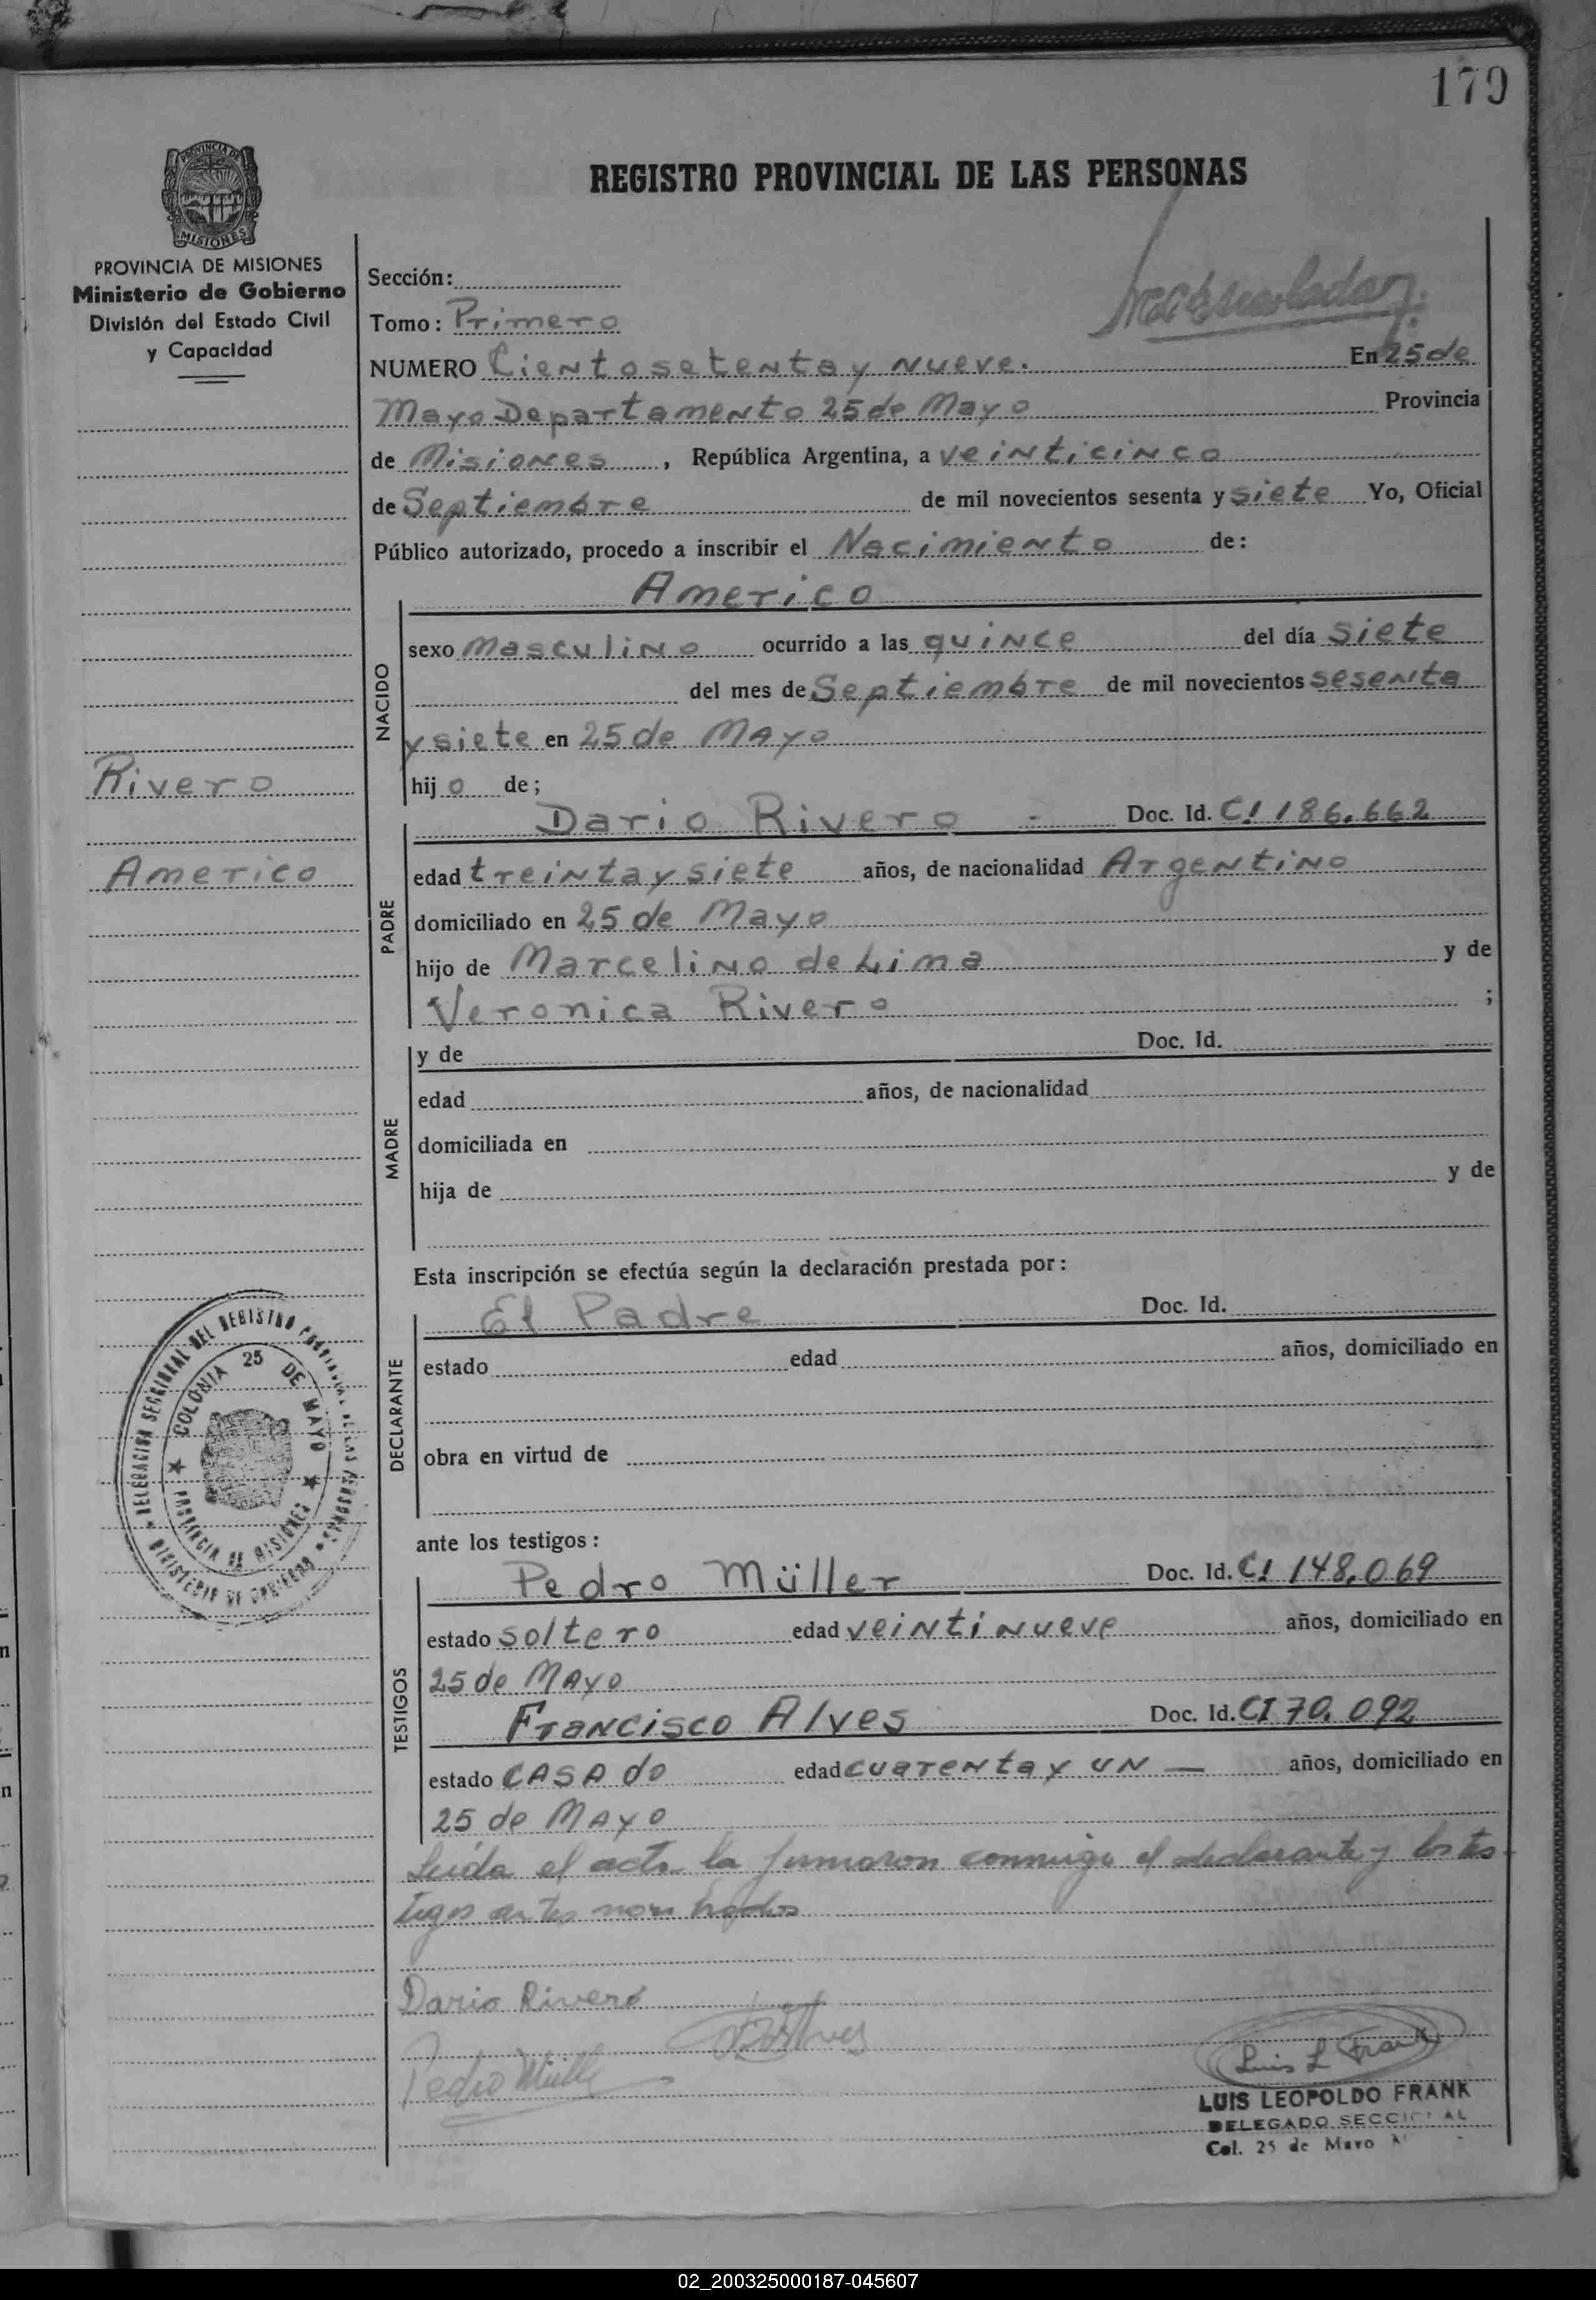 179
REGISTRO PROVINCIAL DE LAS PERSONAS
PROVINCIA DE
MISIONES
PROVINCIA DE MISIONES
Ministerio de Gobierno
División del Estado Civil
y Capacidad
Sección:
Tomo: Primero
NUMERO Ciento setenta y nueve. En 25 de
Mayo Departamento 25 de Mayo Provincia
de Misiones, República Argentina, a veinticinco
de Septiembre de mil novecientos sesenta y siete Yo, Oficial
Público autorizado, procedo a inscribir el Nacimiento de:
Americo
NACIDO
sexo masculino ocurrido a las quince del día siete
del mes de Septiembre de mil novecientos sesenta
y siete en 25 de Mayo
hijo de;
Rivero
Americo
Dario Rivero - Doc. Id. C! 186.662
PADRE
edad treinta y siete años, de nacionalidad Argentino
domiciliado en 25 de Mayo
hijo de Marcelino de Lima y de
Veronica Rivero ;
MADRE
y de Doc. Id.
edad años, de nacionalidad
domiciliada en
hija de y de
Esta inscripción se efectúa según la declaración prestada por:
El Padre Doc. Id.
DECLARANTE
estado edad años, domiciliado en
obra en virtud de
DELEGACION SECCIONAL DEL REGISTRO PROVINCIAL DE LAS PERSONAS
MINISTERIO DE GOBIERNO
COLONIA 25 DE MAYO
PROVINCIA DE MISIONES
ante los testigos:
Pedro Müller Doc. Id. C! 148.069
TESTIGOS
estado soltero edad veintinueve años, domiciliado en
25 de Mayo
Francisco Alves Doc. Id. CI 70.092
estado CASADO edad cuarenta y UN — años, domiciliado en
25 de Mayo
Leida el acta la firmaron conmigo el declarante y los tes-
tigos antes nombrados
Dario Rivero
Pedro Müller
Luis L Frank
LUIS LEOPOLDO FRANK
DELEGADO SECCIONAL
Col. 25 de Mayo
02_200325000187-045607